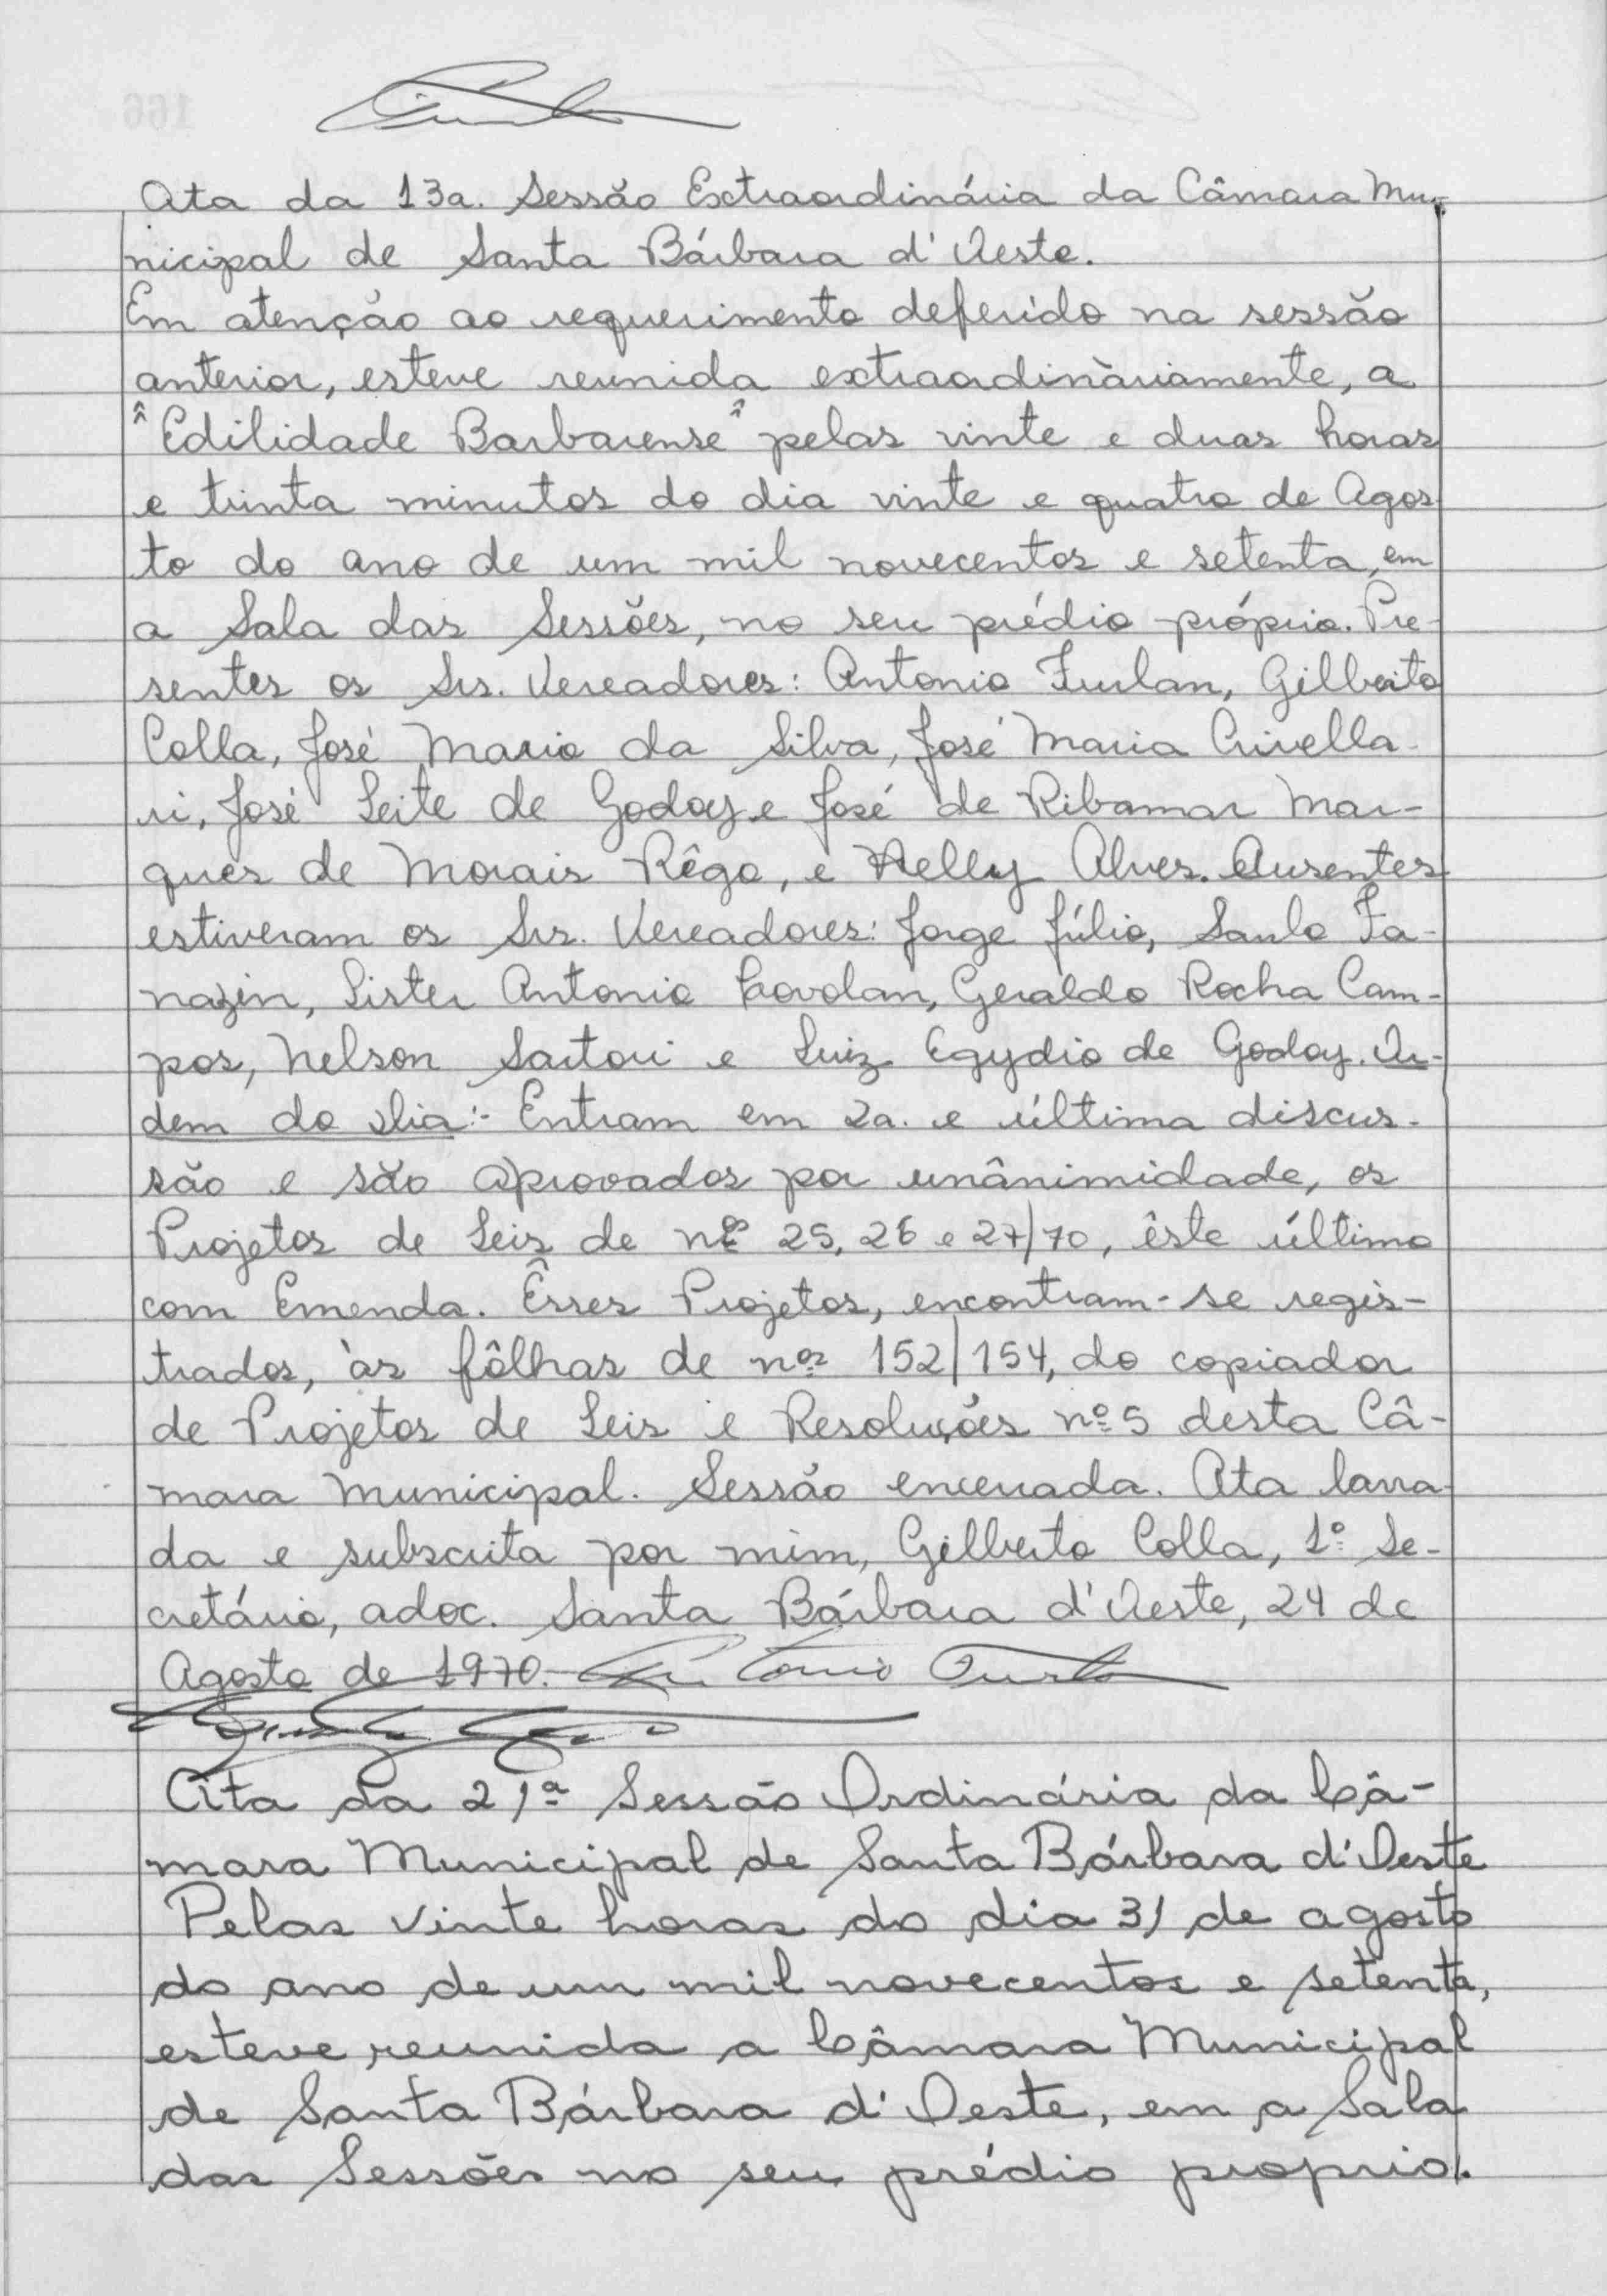 Ata da 13a. Sessão Extraordinária da Câmara Mu-
nicipal de Santa Bárbara d'Oeste.
Em atenção ao requerimento deferido na sessão
anterior, esteve reunida extraordinàriamente, a
"Edilidade Barbarense" pelas vinte e duas horas
e trinta minutos do dia vinte e quatro de Agos
to do ano de um mil novecentos e setenta, em
a Sala das Sessões, no seu prédio próprio. Pre-
sentes os Srs. Vereadores: Antonio Furlan, Gilberto
Colla, José Mario da Silva, José Maria Crivella-
ri, José Leite de Godoy e José de Ribamar Mar-
ques de Morais Rêgo, e Nelly Alves. Ausentes
estiveram os Srs. Vereadores: Jorge Júlio, Saulo Fa-
nazin, Lister Antonio Covolan, Geraldo Rocha Cam-
pos, Nelson Sartori e Luiz Egydio de Godoy. Or-
dem do dia:- Entram em 2a. e última discus-
são e são aprovados por unânimidade, os
Projetos de Leis de nº 25, 26 e 27/70, êste último
com Emenda. Êsses Projetos, encontram-se regis-
trados, às fôlhas de nos 152/154, do copiador
de Projetos de Leis e Resoluções nº 5 desta Câ-
mara Municipal. Sessão encerrada. Ata lavra-
da e subscrita por mim, Gilberto Colla, 1º Se-
cretário, adoc. Santa Bárbara d'Oeste, 24 de
Agosto de 1970. Antonio Furlan
Ata da 21ª Sessão Ordinária da Câ-
mara Municipal de Santa Bárbara d'Oeste
Pelas vinte horas do dia 31 de agosto
do ano de um mil novecentos e setenta,
esteve reunida a Câmara Municipal
de Santa Bárbara d'Oeste, em a Sala
das Sessões no seu prédio proprio.